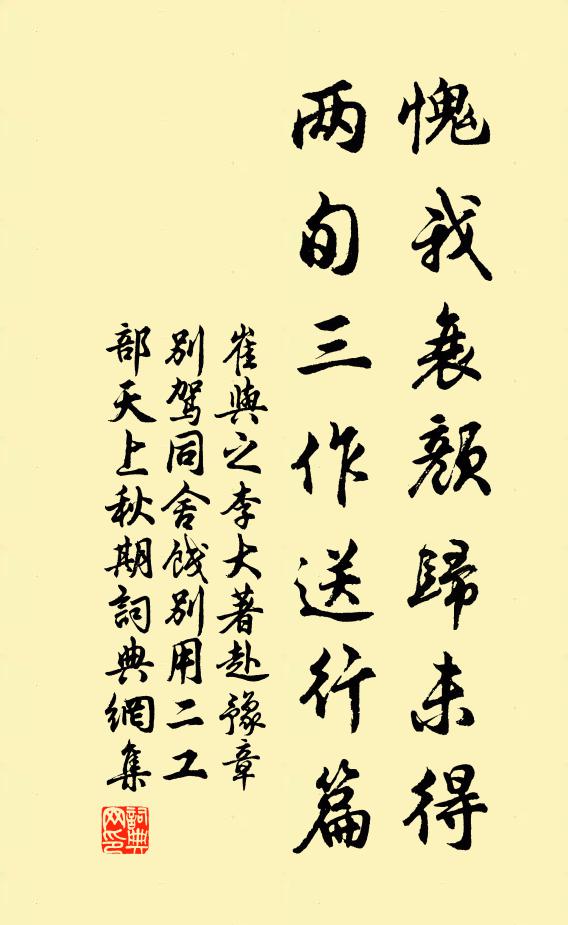 愧我衰顏歸未得
两旬三作送行篇
崔與之李大著赴豫章
别駕同舍餞别用二工
部天上秋期詞典網集
詞典网印